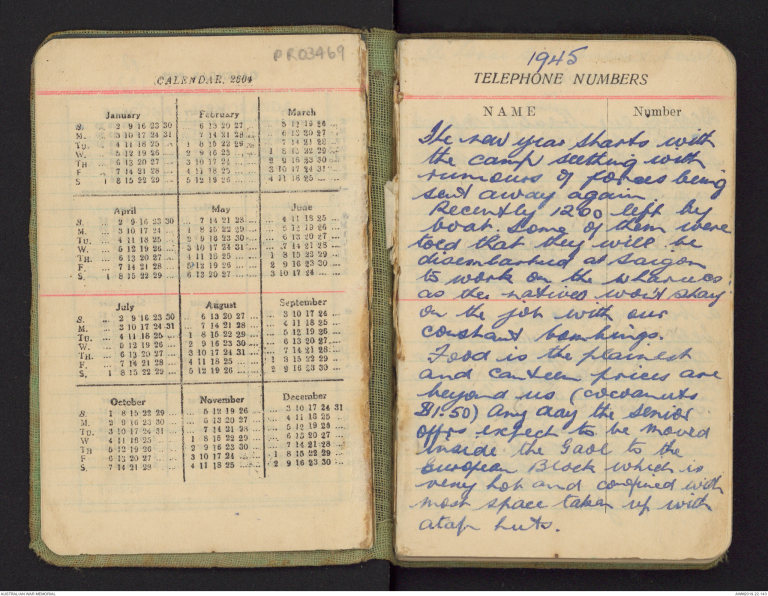 PR03469
CALENDAR, 2604
January February March
S. ... 2 9 16 23 30 ... 6 13 20 27 ... ... 5 12 19 26 ...
M. ... 3 10 17 24 31 ... 7 14 21 28 ... ... 6 13 20 27 ...
TU. ... 4 11 18 25 ... 1 8 15 22 29 ... ... 7 14 21 28 ...
W. ... 5 12 19 26 ... 2 9 16 23 ... 1 8 15 22 29 ...
TH ... 6 13 20 27 ... 3 10 17 24 ... 2 9 16 23 30 ...
F ... 7 14 21 28 ... 4 11 18 25 ... 3 10 17 24 31 ...
S 1 8 15 22 29 ... 5 12 19 26 ... 4 11 18 25 ...
April May June
S. ... 2 9 16 23 30 ... 7 14 21 28 ... ... 4 11 18 25 ...
M. ... 3 10 17 24 ... 1 8 15 22 29 ... ... 5 12 19 26 ...
TU. ... 4 11 18 25 ... 2 9 16 23 30 ... ... 6 13 20 27 ...
W. ... 5 12 19 26 ... 3 10 17 24 31 ... ... 7 14 21 28 ...
TH. ... 6 13 20 27 ... 4 11 18 25 ... 1 8 15 22 29 ...
F. ... 7 14 21 28 ... 5 12 19 26 ... 2 9 16 23 30 ...
S. 1 8 15 22 29 ... 6 13 20 27 ... 3 10 17 24 ...
July August September
S. ... 2 9 16 23 30 ... 6 13 20 27 ... 3 10 17 24 ...
M. ... 3 10 17 24 31 ... 7 14 21 28 ... 4 11 18 25 ...
TU. ... 4 11 18 25 ... 1 8 15 22 29 ... ... 5 12 19 26 ...
W. ... 5 12 19 26 ... 2 9 16 23 30 ... ... 6 13 20 27 ...
TH. ... 6 13 20 27 ... 3 10 17 24 31 ... 7 14 21 28 ...
F. ... 7 14 21 28 ... 4 11 18 25 ... 1 8 15 22 29 ...
S. 1 8 15 22 29 ... 5 12 19 26 ... 2 9 16 23 30 ...
October November December
S. 1 8 15 22 29 ... 5 12 19 26 ... 3 10 17 24 31
M. 2 9 16 23 30 ... 6 13 20 27 ... 4 11 18 25
TU. 3 10 17 24 31 ... 7 14 21 28 ... 5 12 19 26
W 4 11 18 25 ... 1 8 15 22 29 ... 6 13 20 27
TH 5 12 19 26 ... 2 9 16 23 30 ... 7 14 21 28
F. 6 13 20 27 ... 3 10 17 24 ... 1 8 15 22 29 ...
S. 7 14 21 28 ... 4 11 18 25 ... 2 9 16 23 30 ...
1945
TELEPHONE NUMBERS
NAME Number
The new year starts with
the camp seething with
rumours of forces being
sent away again.
Recently 1200 left by
boat. Some of them were
told that they will be
disembarked at Saigon
to work on the wharves.
as the natives won't stay
on the job with our
constant bombings.
Food is the plainest
and canteen prices are
beyond us (cocoanuts
$1.50) Any day the senior
offrs expect to be moved
inside the Gaol to the
European Block which is
very hot and confined with
most space taken up with
atap huts.
AUSTRALIAN WAR MEMORIAL